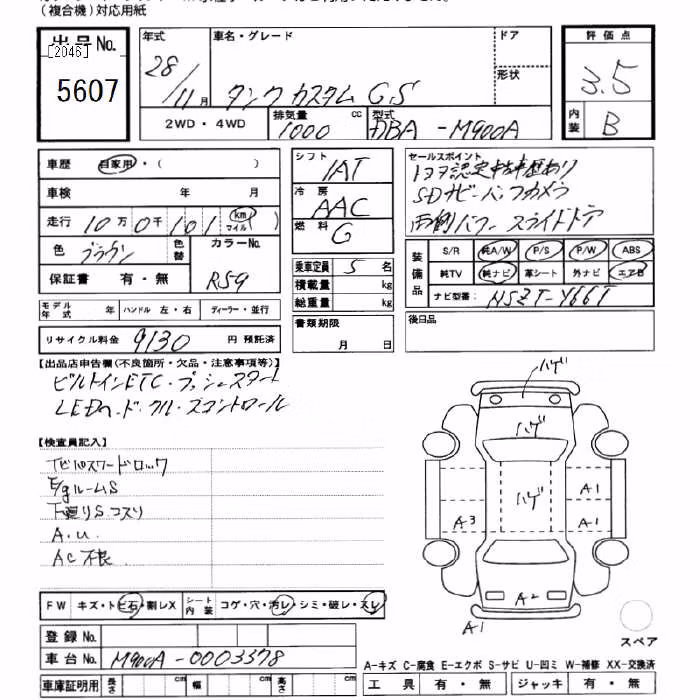 (複合機)対応用紙
出品No.
[2046]
5607
年式 28/11月
車名・グレード タンク カスタム GS
ドア
形状
2WD・4WD
排気量 1000 cc
型式 DBA-M900A
評価点 3.5
内装 B
車歴 自家用・( )
車検 年 月
走行 10万0千101 km マイル
色 ブラウン 色替 カラーNo. R59
保証書 有・無
シフト IAT
冷房 AAC
燃料 G
乗車定員 5名
積載量 kg
総重量 kg
セールスポイント
トヨタ認定中古車歴あり
SDナビ・バックカメラ
両側パワースライドドア
装備品 S/R 純A/W P/S P/W ABS
純TV 純ナビ 革シート 外ナビ エアB
ナビ型番: NSZT-Y66T
モデル年式 年 ハンドル 左・右 ディーラー・並行
書類期限 月 日
後日品
リサイクル料金 9130 円 預託済
【出品店申告欄(不良箇所・欠品・注意事項等)】
ビルトインETC・プッシュスタート
LEDヘッド・クルーズコントロール
【検査員記入】
ナビパスワードロック
E/gルームS
下廻りS コスリ
A.U.
AC不良
ハゲ
ハゲ
ハゲ
A1
A3 A1
A2
A1
スペア
FW キズ・トビ石・割レX シート内装 コゲ・穴・汚レ・シミ・破レ・スレ
登録No.
車台No. M900A-0003378
A-キズ C-腐食 E-エクボ S-サビ U-凹ミ W-補修 XX-交換済
車庫証明用 長さ cm 幅 cm 高さ cm
工具 有・無 ジャッキ 有・無